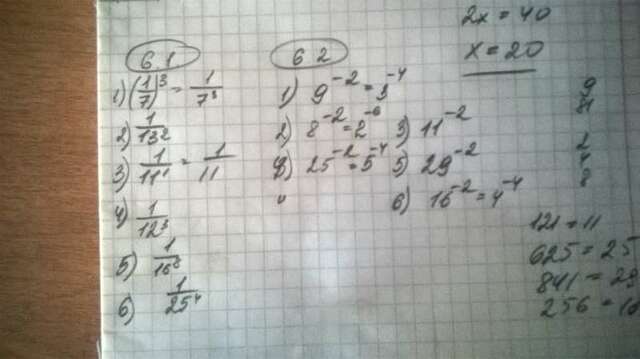 2x = 40
x = 20
6 1
1) (1/7)^3 = 1/7^3
2) 1/13^2
3) 1/11^1 = 1/11
4) 1/12^3
5) 1/16^8
6) 1/25^4
6 2
1) 9^-2 = 3^-4
2) 8^-2 = 2^-6 3) 11^-2
4) 25^-2 = 5^-4 5) 29^-2
6) 16^-2 = 4^-4
9
81
2
4
8
121 = 11
625 = 25
841 = 29
256 = 16